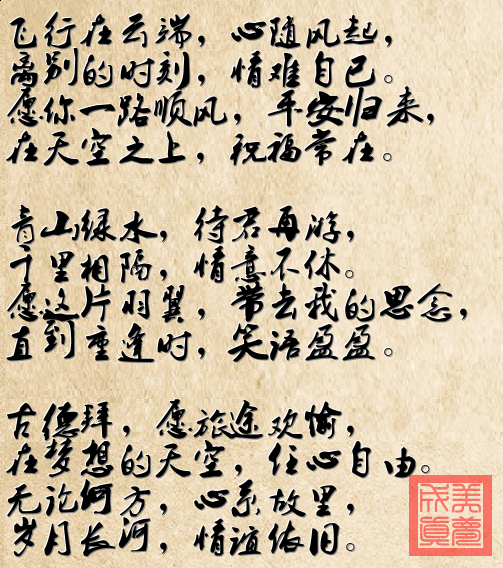 飞行在云端，心随风起，
离别的时刻，情难自已。
愿你一路顺风，平安归来，
在天空之上，祝福常在。
青山绿水，待君再游，
千里相隔，情意不休。
愿这片羽翼，带去我的思念，
直到重逢时，笑语盈盈。
古德拜，愿旅途欢愉，
在梦想的天空，任心自由。
无论何方，心系故里，
岁月长河，情谊依旧。